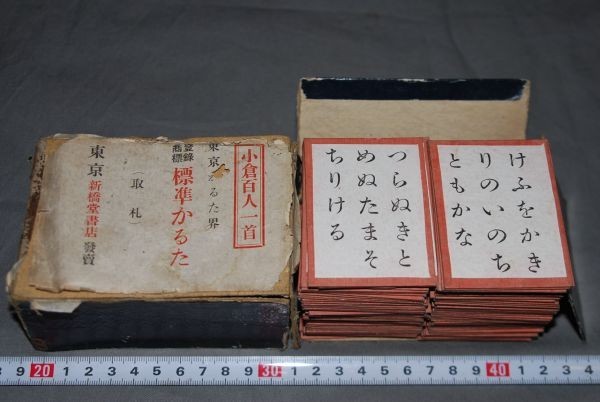 小倉百人一首
東京かるた界
登錄商標
標準かるた
（取札）
東京 新橋堂書店 發賣
けふをかき
りのいのち
ともかな
つらぬきと
めぬたまそ
ちりける
9 20 1 2 3 4 5 6 7 8 9 30 1 2 3 4 5 6 7 8 9 40 1 2 3